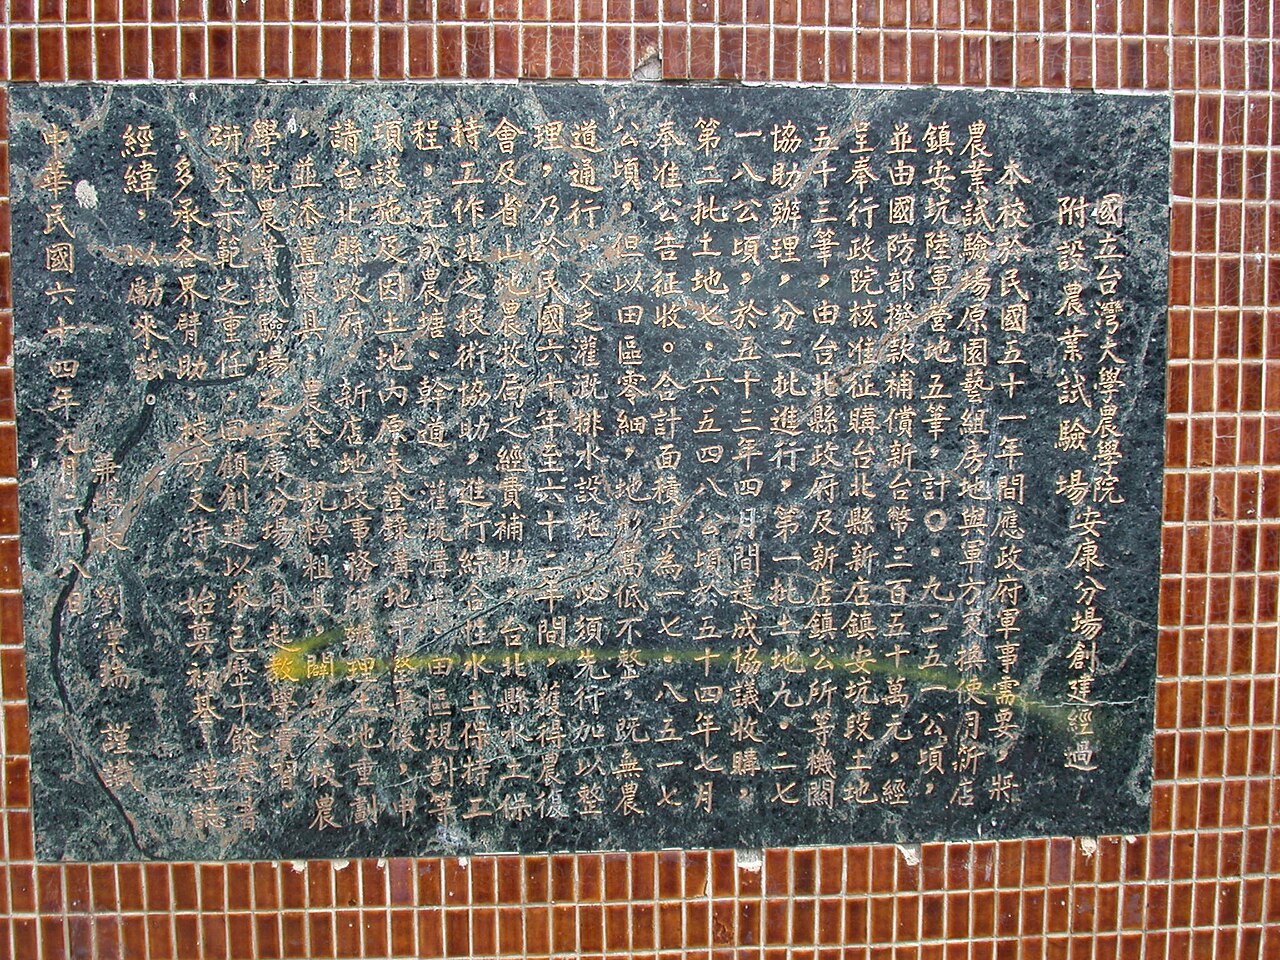 國立台灣大學農學院
附設農業試驗場安康分場創建經過
本校於民國五十一年間應政府軍事需要,將
農業試驗場原園藝組房地與軍方交換使用新店
鎮安坑陸軍營地五筆,計〇.九二五一公頃,
並由國防部撥款補償新台幣三百五十萬元,經
呈奉行政院核准征購台北縣新店鎮安坑段土地
五十三筆,由台北縣政府及新店鎮公所等機關
協助辦理,分二批進行,第一批土地九.二七
一八公頃,於五十三年四月間達成協議收購,
第二批土地七.六五四八公頃於五十四年七月
奉准公告征收。合計面積共為一七.八五一七
公頃,但以田區零細,地形高低不整,既無農
道通行,又乏灌溉排水設施,必須先行加以整
理,乃於民國六十年至六十二年間,獲得農復
會及省山地農牧局之經費補助,台北縣水土保
持工作站之技術協助,進行綜合性水土保持工
程,完成農塘、幹道、灌溉溝渠、田區規劃等
項設施及因土地內原未登錄溝地予整平後,申
請台北縣政府、新店地政事務所辦理土地重劃
,並添置農具,農舍,規模粗具,闢為本校農
學院農業試驗場之安康分場,負起教學實習、
研究示範之重任,回顧創建以來已歷十餘寒暑
,多承各界臂助,校方支持,始奠初基,謹誌
經緯,以勵來茲。
兼場長 劉 論 謹識
中華民國六十四年九月二十八日